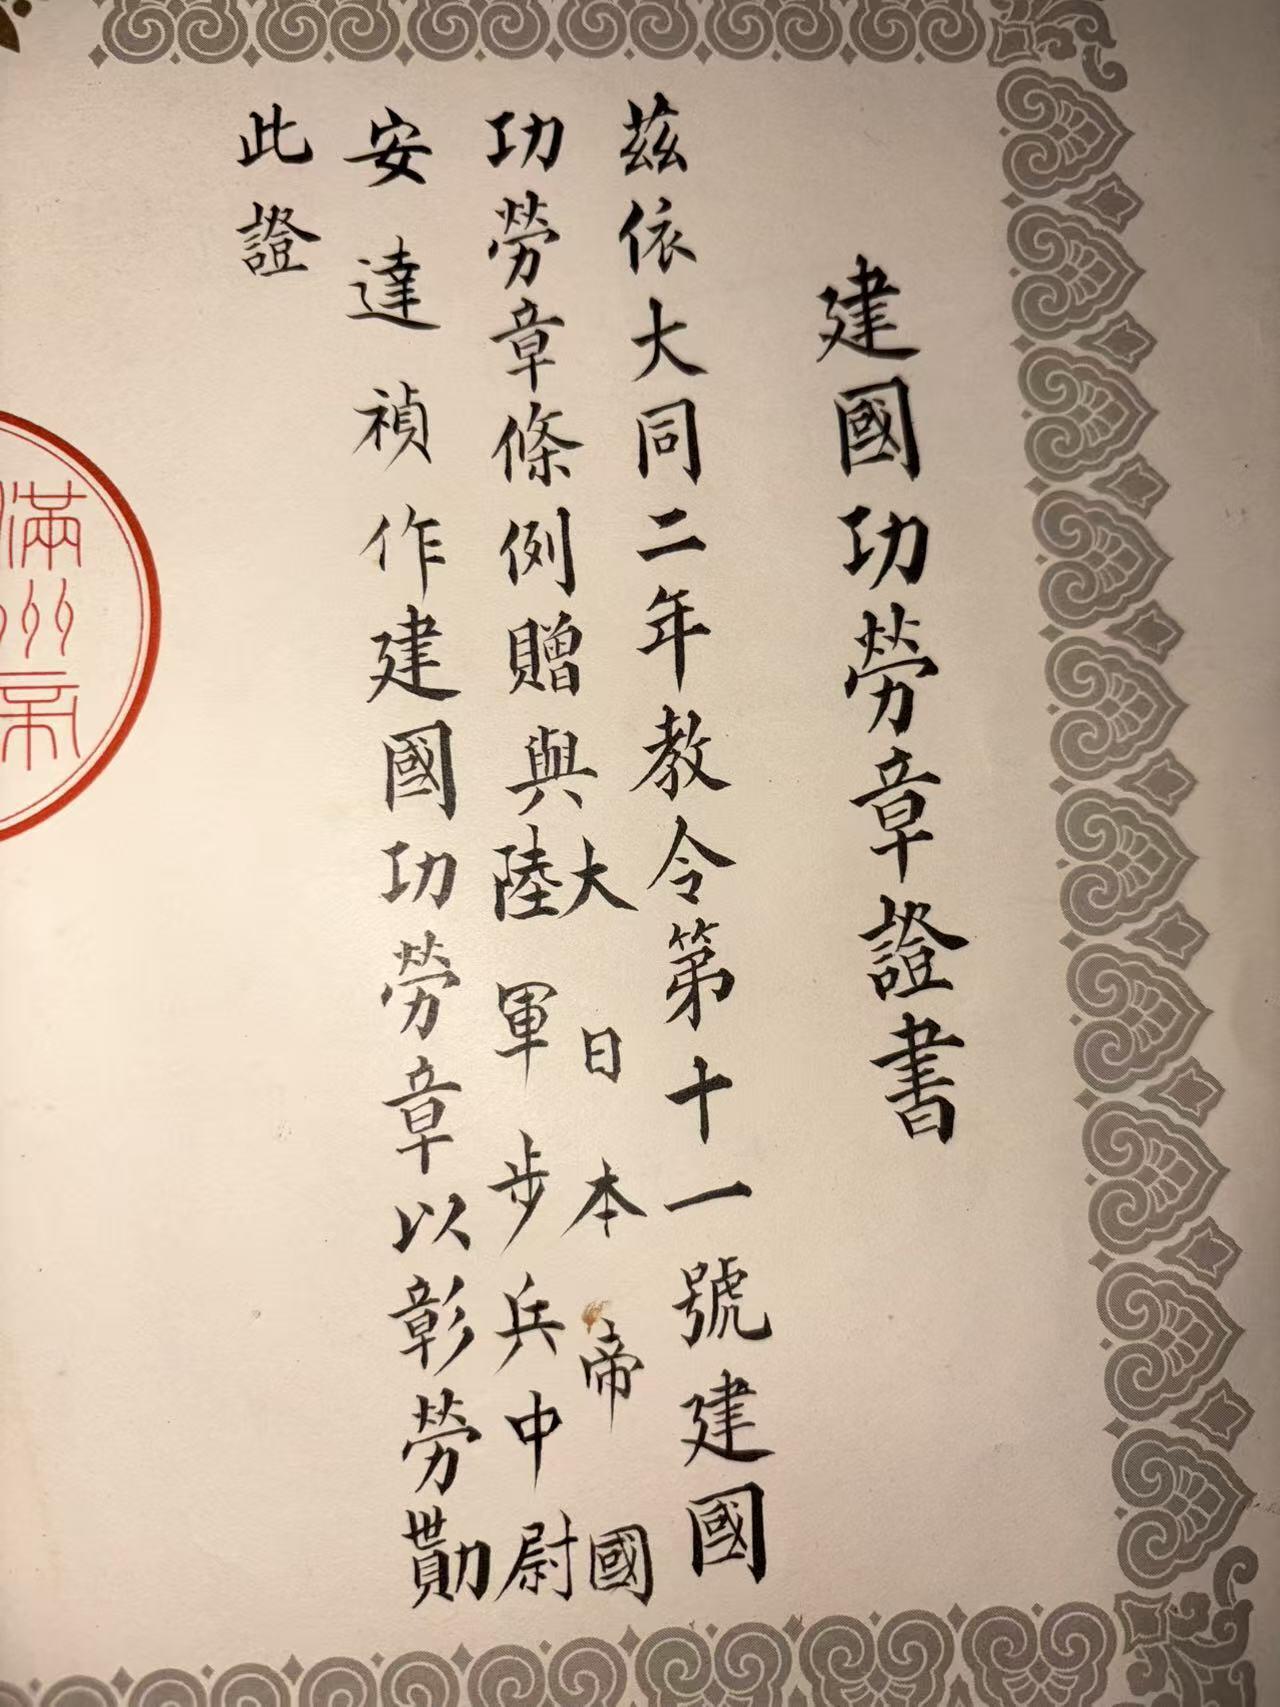 建國功勞章證書
茲依大同二年教令第十一號建國
功勞章條例贈與大日本帝國
陸軍步兵中尉
安達禎作建國功勞章以彰勞勩
此證
滿州帝